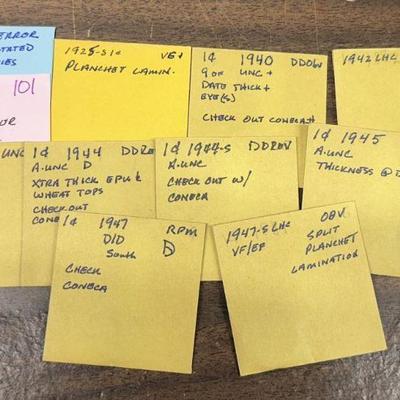 ERROR
101
1925-S 1¢ VG+
PLANCHET LAMIN.
1¢ 1940 DDObv
9 OF UNC +
DATE THICK +
EYE(S)
CHECK OUT CONECA
1942 LHC
UNC
1¢ 1944 DDREV
A.UNC D
XTRA THICK EPU &
WHEAT TOPS
CHECK OUT
CONE
1¢ 1944-S DDREV
A.UNC
CHECK OUT W/
CONECA
1¢ 1945
A.UNC
THICKNESS @ D
1¢ 1947 RPM
D/D D
South
CHECK
CONECA
1947-S LHC OBV
VF/EF SPLIT
PLANCHET
LAMINATION